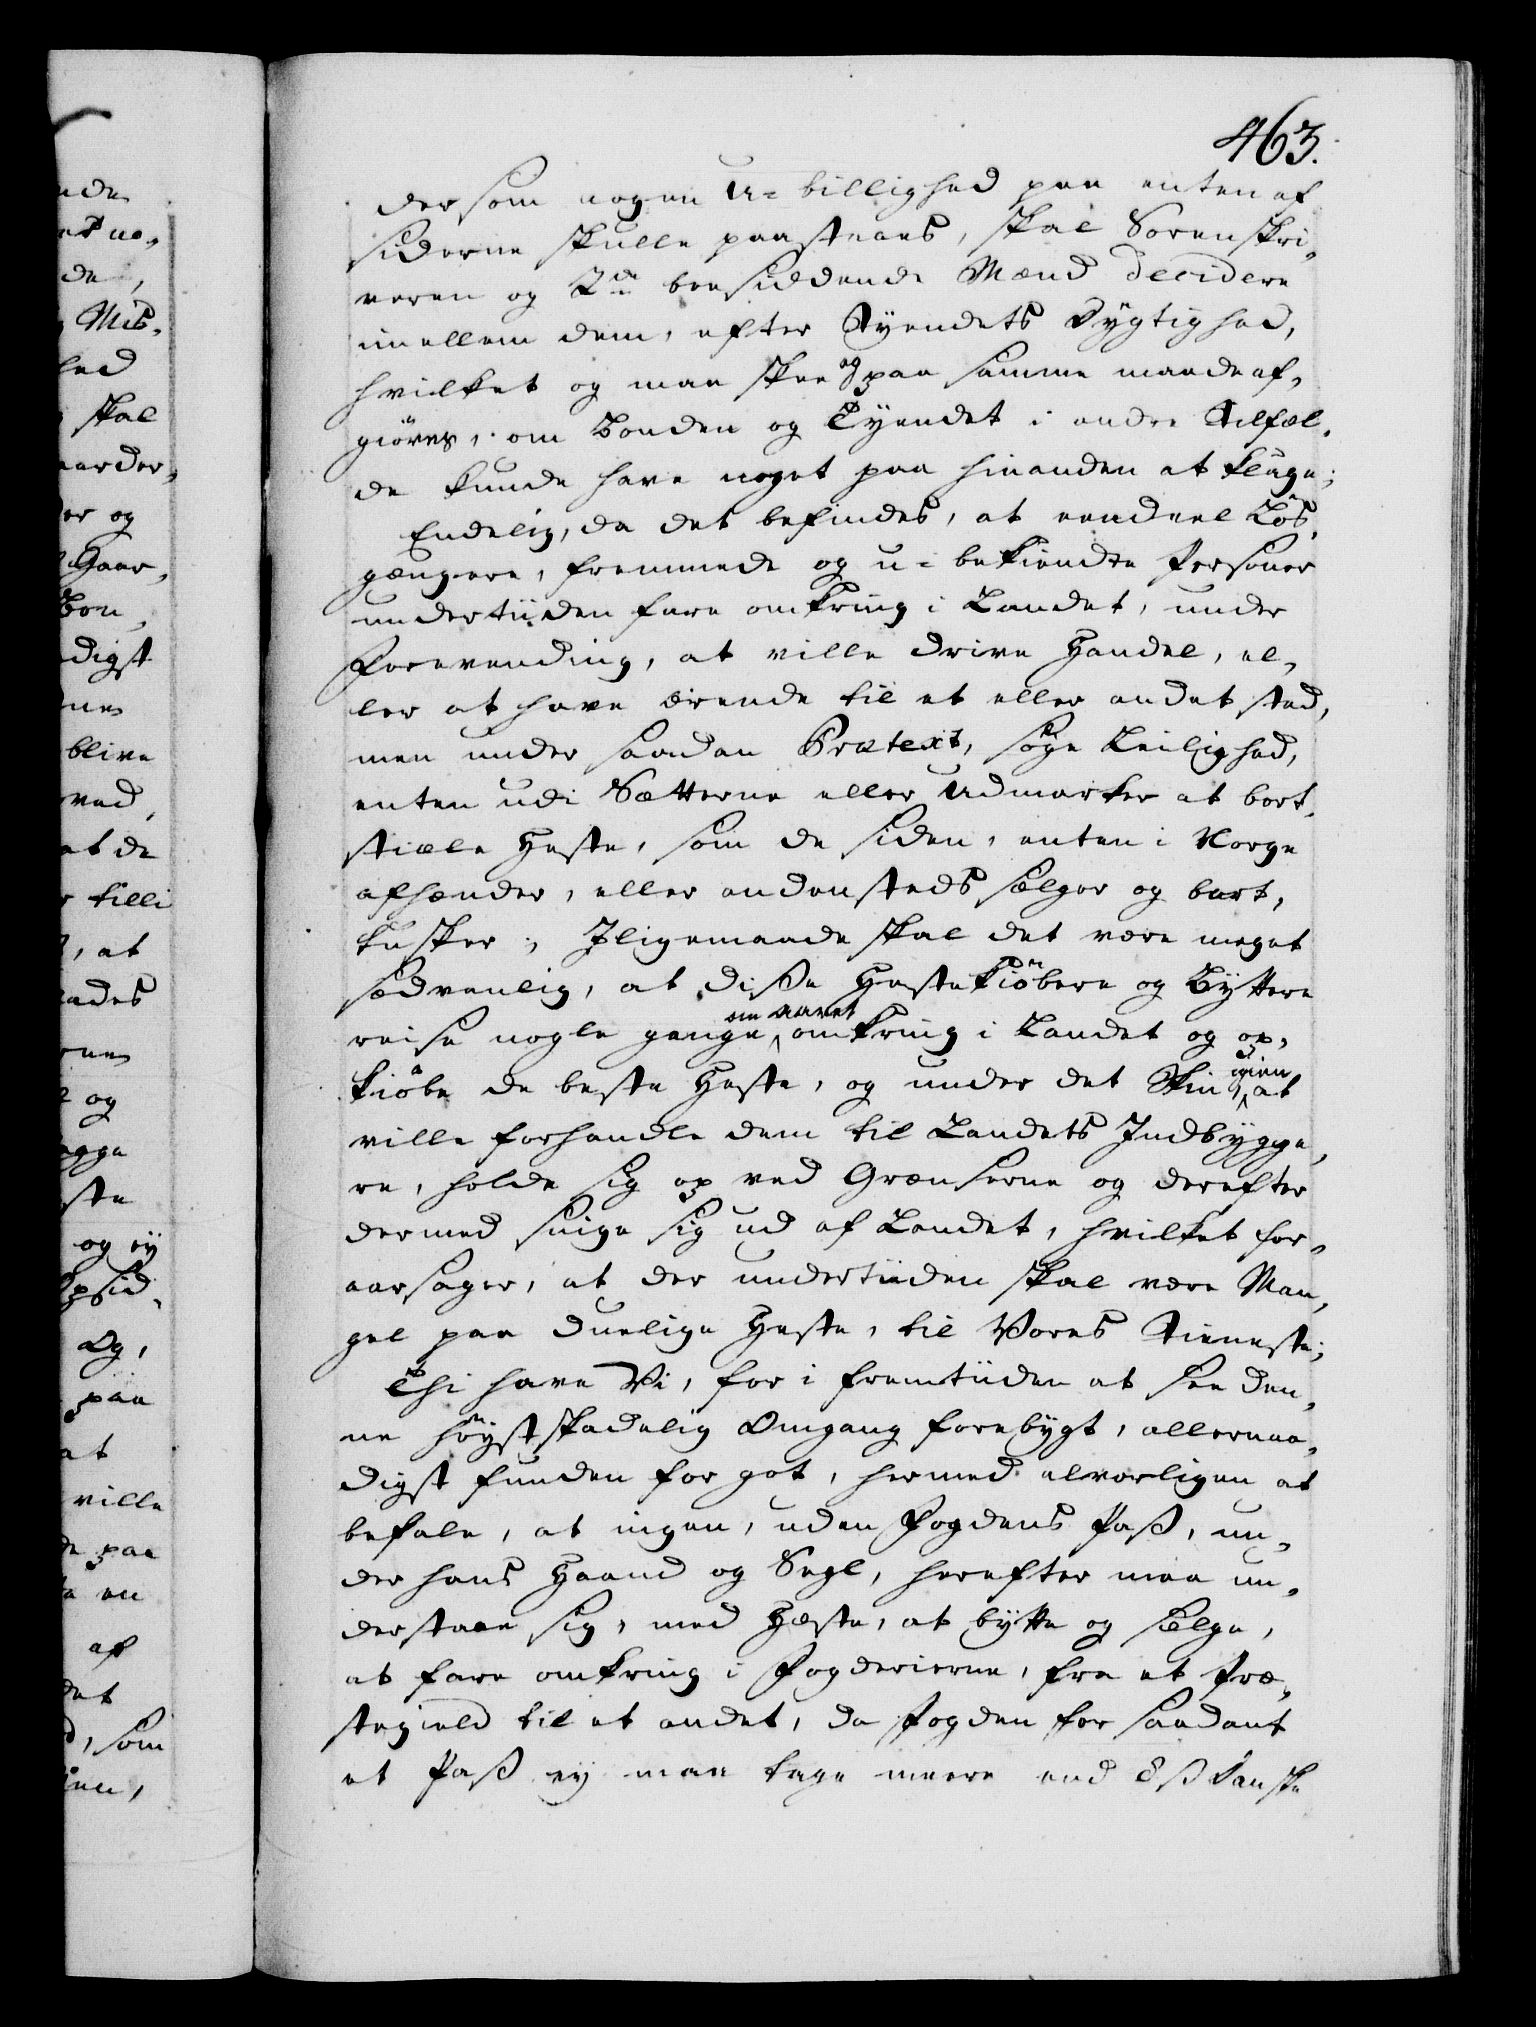 463.
dersom nogen U-billighed paa enten af
siderne skulle paastaaes, skal Sorenskri-
veren og 2de boesiddende Mænd decidere
imellem dem, efter Tyendets Dygtighed,
hvilket og maa skee og paa samme maade af-
giöres, om Bonden og Tyendet i andre Tilfæl-
de kunde have noget paa hinanden at klage;
Endelig, da det befindes, at eendeel Lös-
gængere, fremmede og u-bekiendte Personer
undertiiden fare omkring i Landet, under
Forevending, at ville drive Handel, el-
ler at have ærende til et eller andet sted,
men under saadan Prætext, söge Leilighed,
enten udi Sætterne eller Udmarker at bort-
stiæle Heste, som de siden, enten i Norge
afhænder, eller andensteds sælger og bort-
tusker; Iligemaade skal det være meget
sædvanlig, at disse Hestekiöbere og Byttere
reise nogle gange om aaret omkring i Landet og op-
kiöbe de beste Heste, og under det Skin igien at
ville forhandle dem til Landets Indbygge-
re, holde sig op ved Grænserne og derefter
dermed snige sig ud af Landet, hvilket for-
aarsager, at der undertiiden skal være Man-
gel paa duelige Heste, til Vores Tieneste;
Thi have Vi, for i fremtiiden at see den-
ne höystskadelig Omgang forebygt, allernaa-
digst funden for got, hermed alvorligen at
befale, at ingen, uden Fogdens Pass, un-
der hans Haand og Segl, herefter maa un-
derstaae sig, med Hæste, at bytte og sælge,
at fare omkring i Fogderierne, fra et Præ-
stegield til et andet, da Fogden for saadant
et Pass ey maa tage meere end 8 ss danske